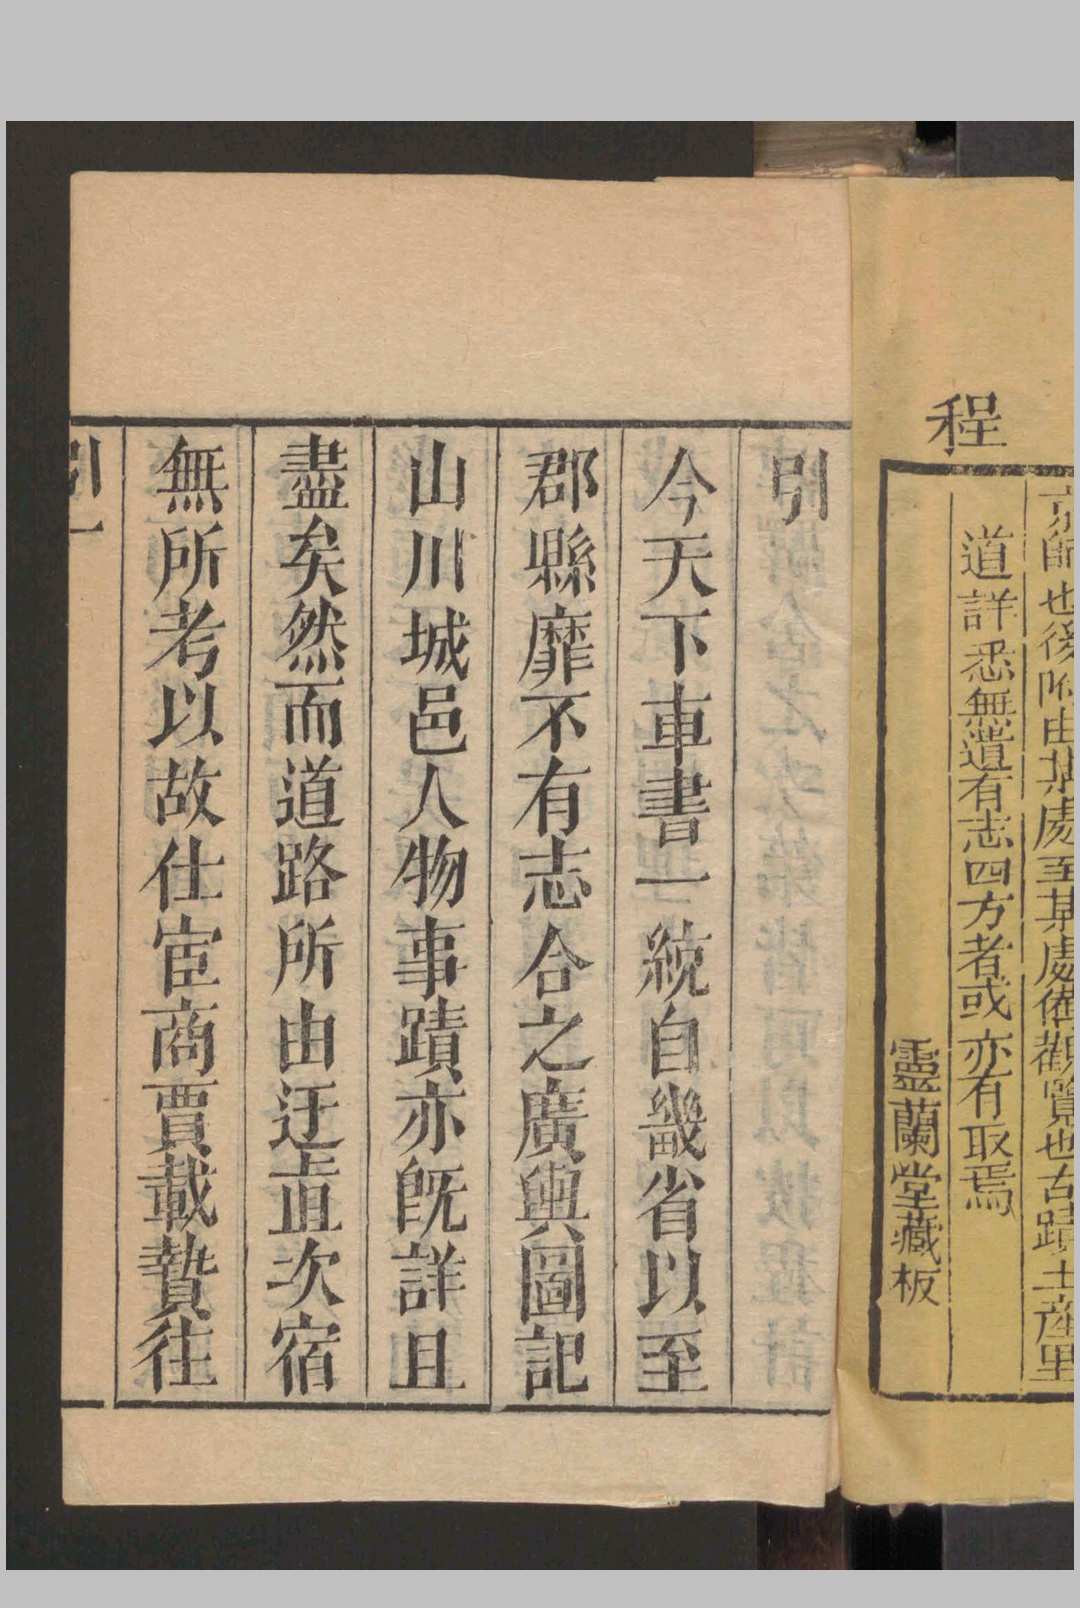 程
京師也後附由某處至某處備觀覽也古蹟土產里
道詳悉無遺有志四方者或亦有取焉
靈蘭堂藏板
引
今天下車書一統自畿省以至
郡縣靡不有志合之廣輿圖記
山川城邑人物事蹟亦旣詳且
盡矣然而道路所由迂直次宿
無所考以故仕宦商賈載贄往
引一